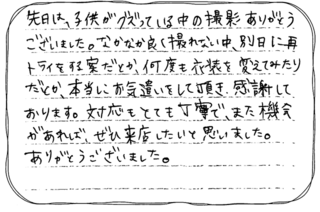 先日は、子供がグズっている中の撮影ありがとう
ございました。なかなか良く撮れない中、別日に再
トライをする案だとか、何度も衣装を変えてみたり
だとか、本当にお気遣いをして頂き、感謝して
おります。対応もとても丁寧で、また機会
があれば、ぜひ来店したいと思いました。
ありがとうございました。